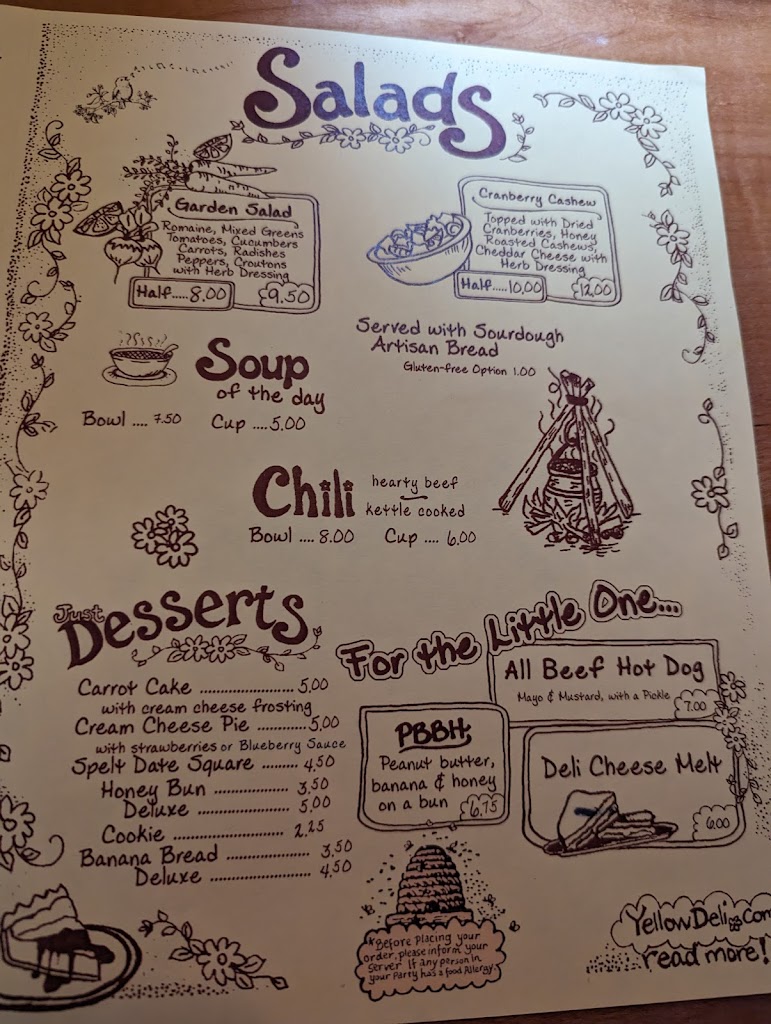 Salads
Garden Salad
Romaine, Mixed Greens
Tomatoes, Cucumbers
Carrots, Radishes
Peppers, Croutons
with Herb Dressing
Half.....8.00
9.50
Cranberry Cashew
Topped with Dried
Cranberries, Honey
Roasted Cashews,
Cheddar Cheese with
Herb Dressing
Half.....10.00
12.00
Served with Sourdough
Artisan Bread
Gluten-free Option 1.00
Soup
of the day
Bowl .... 7.50 Cup ....5.00
Chili
hearty beef
kettle cooked
Bowl .... 8.00 Cup .... 6.00
Just
Desserts
Carrot Cake ........................ 5.00
with cream cheese frosting
Cream Cheese Pie ............5.00
with strawberries or Blueberry Sauce
Spelt Date Square ......... 4.50
Honey Bun ................... 3.50
Deluxe ..................... 5.00
Cookie ........................ 2.25
Banana Bread .................. 3.50
Deluxe ......................... 4.50
For the Little One...
All Beef Hot Dog
Mayo & Mustard, with a Pickle
7.00
PBBH;
Peanut butter,
banana & honey
on a bun
6.75
Deli Cheese Melt
6.00
*Before placing your
order, please inform your
server if any person in
your Party has a food Allergy.
YellowDeli.com
read more!